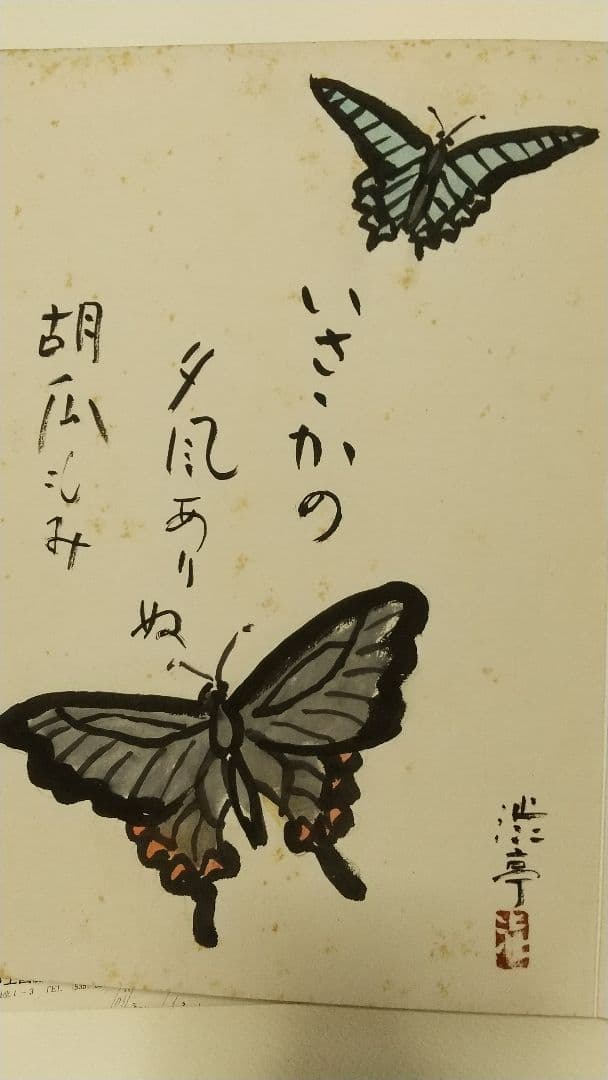 いさゝかの
夕風ありぬ
胡瓜もみ
渋亭
TEL